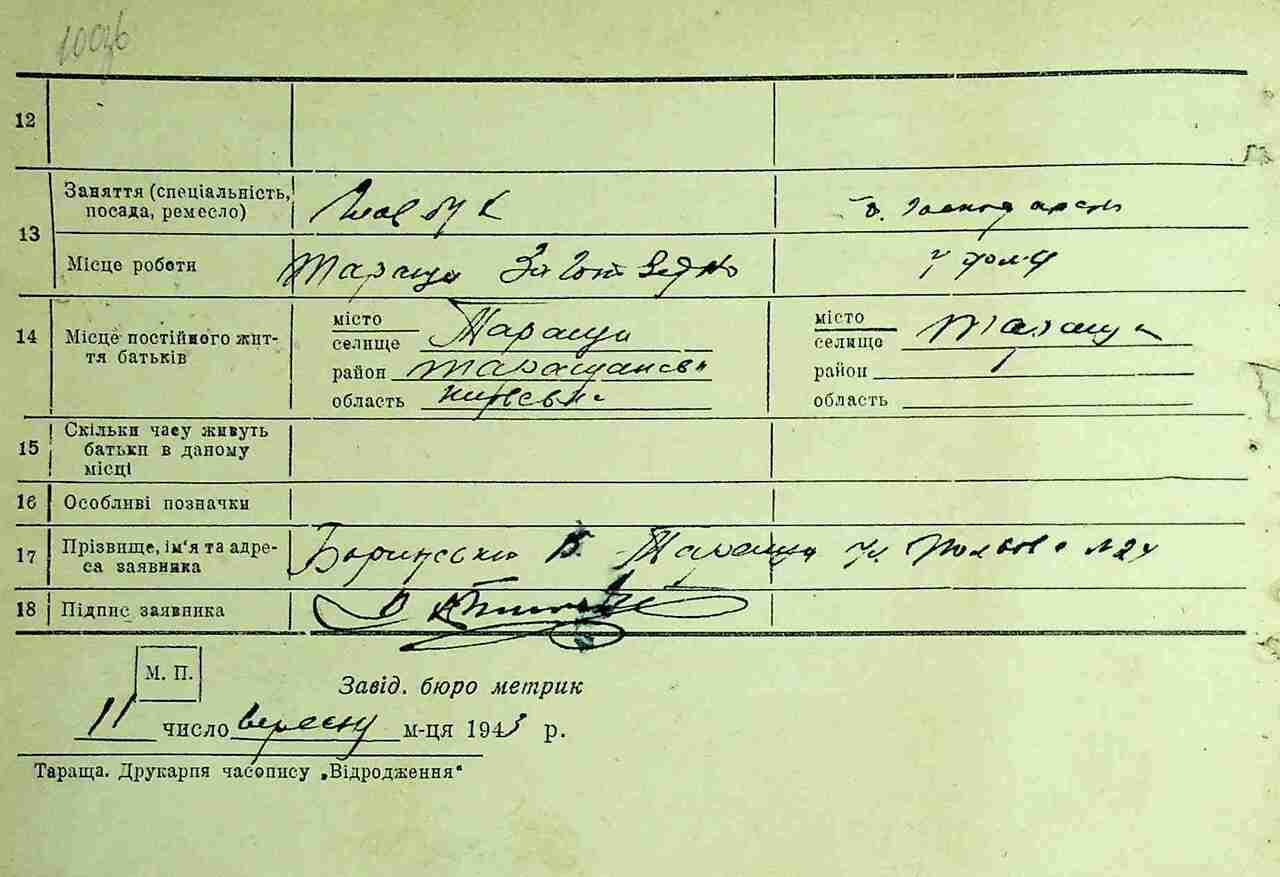 12
13 Заняття (спеціальність, посада, ремесло) Главбух
Місце роботи Тараща Заготзерно
14 Місце постійного життя батьків
місто Тараща місто Тараща
селище селище
район Таращанськ район
область Київськ область
15 Скільки часу живуть
батьки в даному
місці
16 Особливі позначки
17 Прізвище, ім'я та адре-
са заявника Тараща ул.
18 Підпис заявника
М. П.
Завід. бюро метрик
11 число вересня м-ця 1943 р.
Тараща. Друкарня часопису „Відродження“